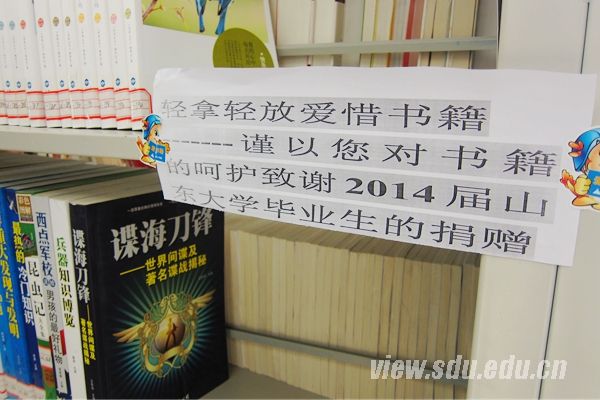 轻拿轻放爱惜书籍
----谨以您对书籍
的呵护致谢2014届山
东大学毕业生的捐赠
重大发现与发明
最热的冷门知识
昆虫记
西点军校
男孩的最好礼物
兵器知识博览
谍海刀锋
世界间谍及
著名谍战揭秘
谍海刀锋
——世界间谍及
著名谍战揭秘
view.sdu.edu.cn